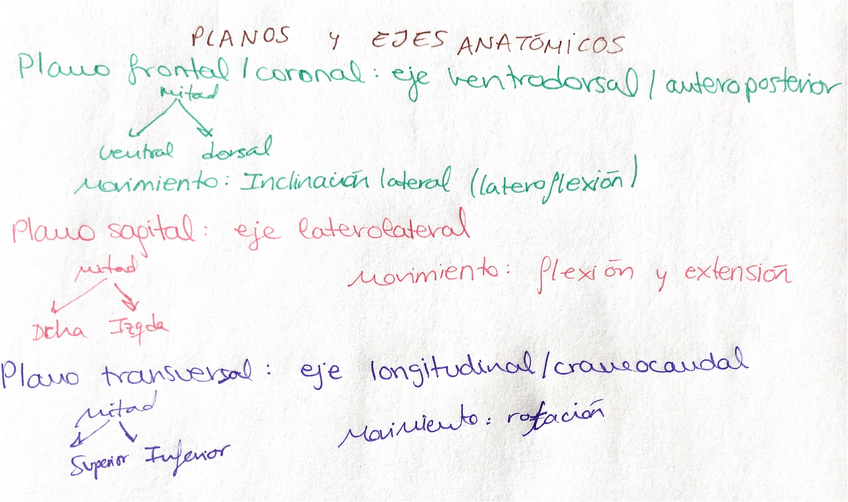 PLANOS Y EJES ANATÓMICOS
Plano frontal/coronal: eje ventrodorsal/anteroposterior
mitad
ventral dorsal
Movimiento: Inclinación lateral (lateroflexión)
Plano sagital: eje laterolateral
mitad
Movimiento: flexión y extensión
Dcha Izqda
Plano transversal: eje longitudinal/craneocaudal
mitad
Movimiento: rotación
Superior Inferior